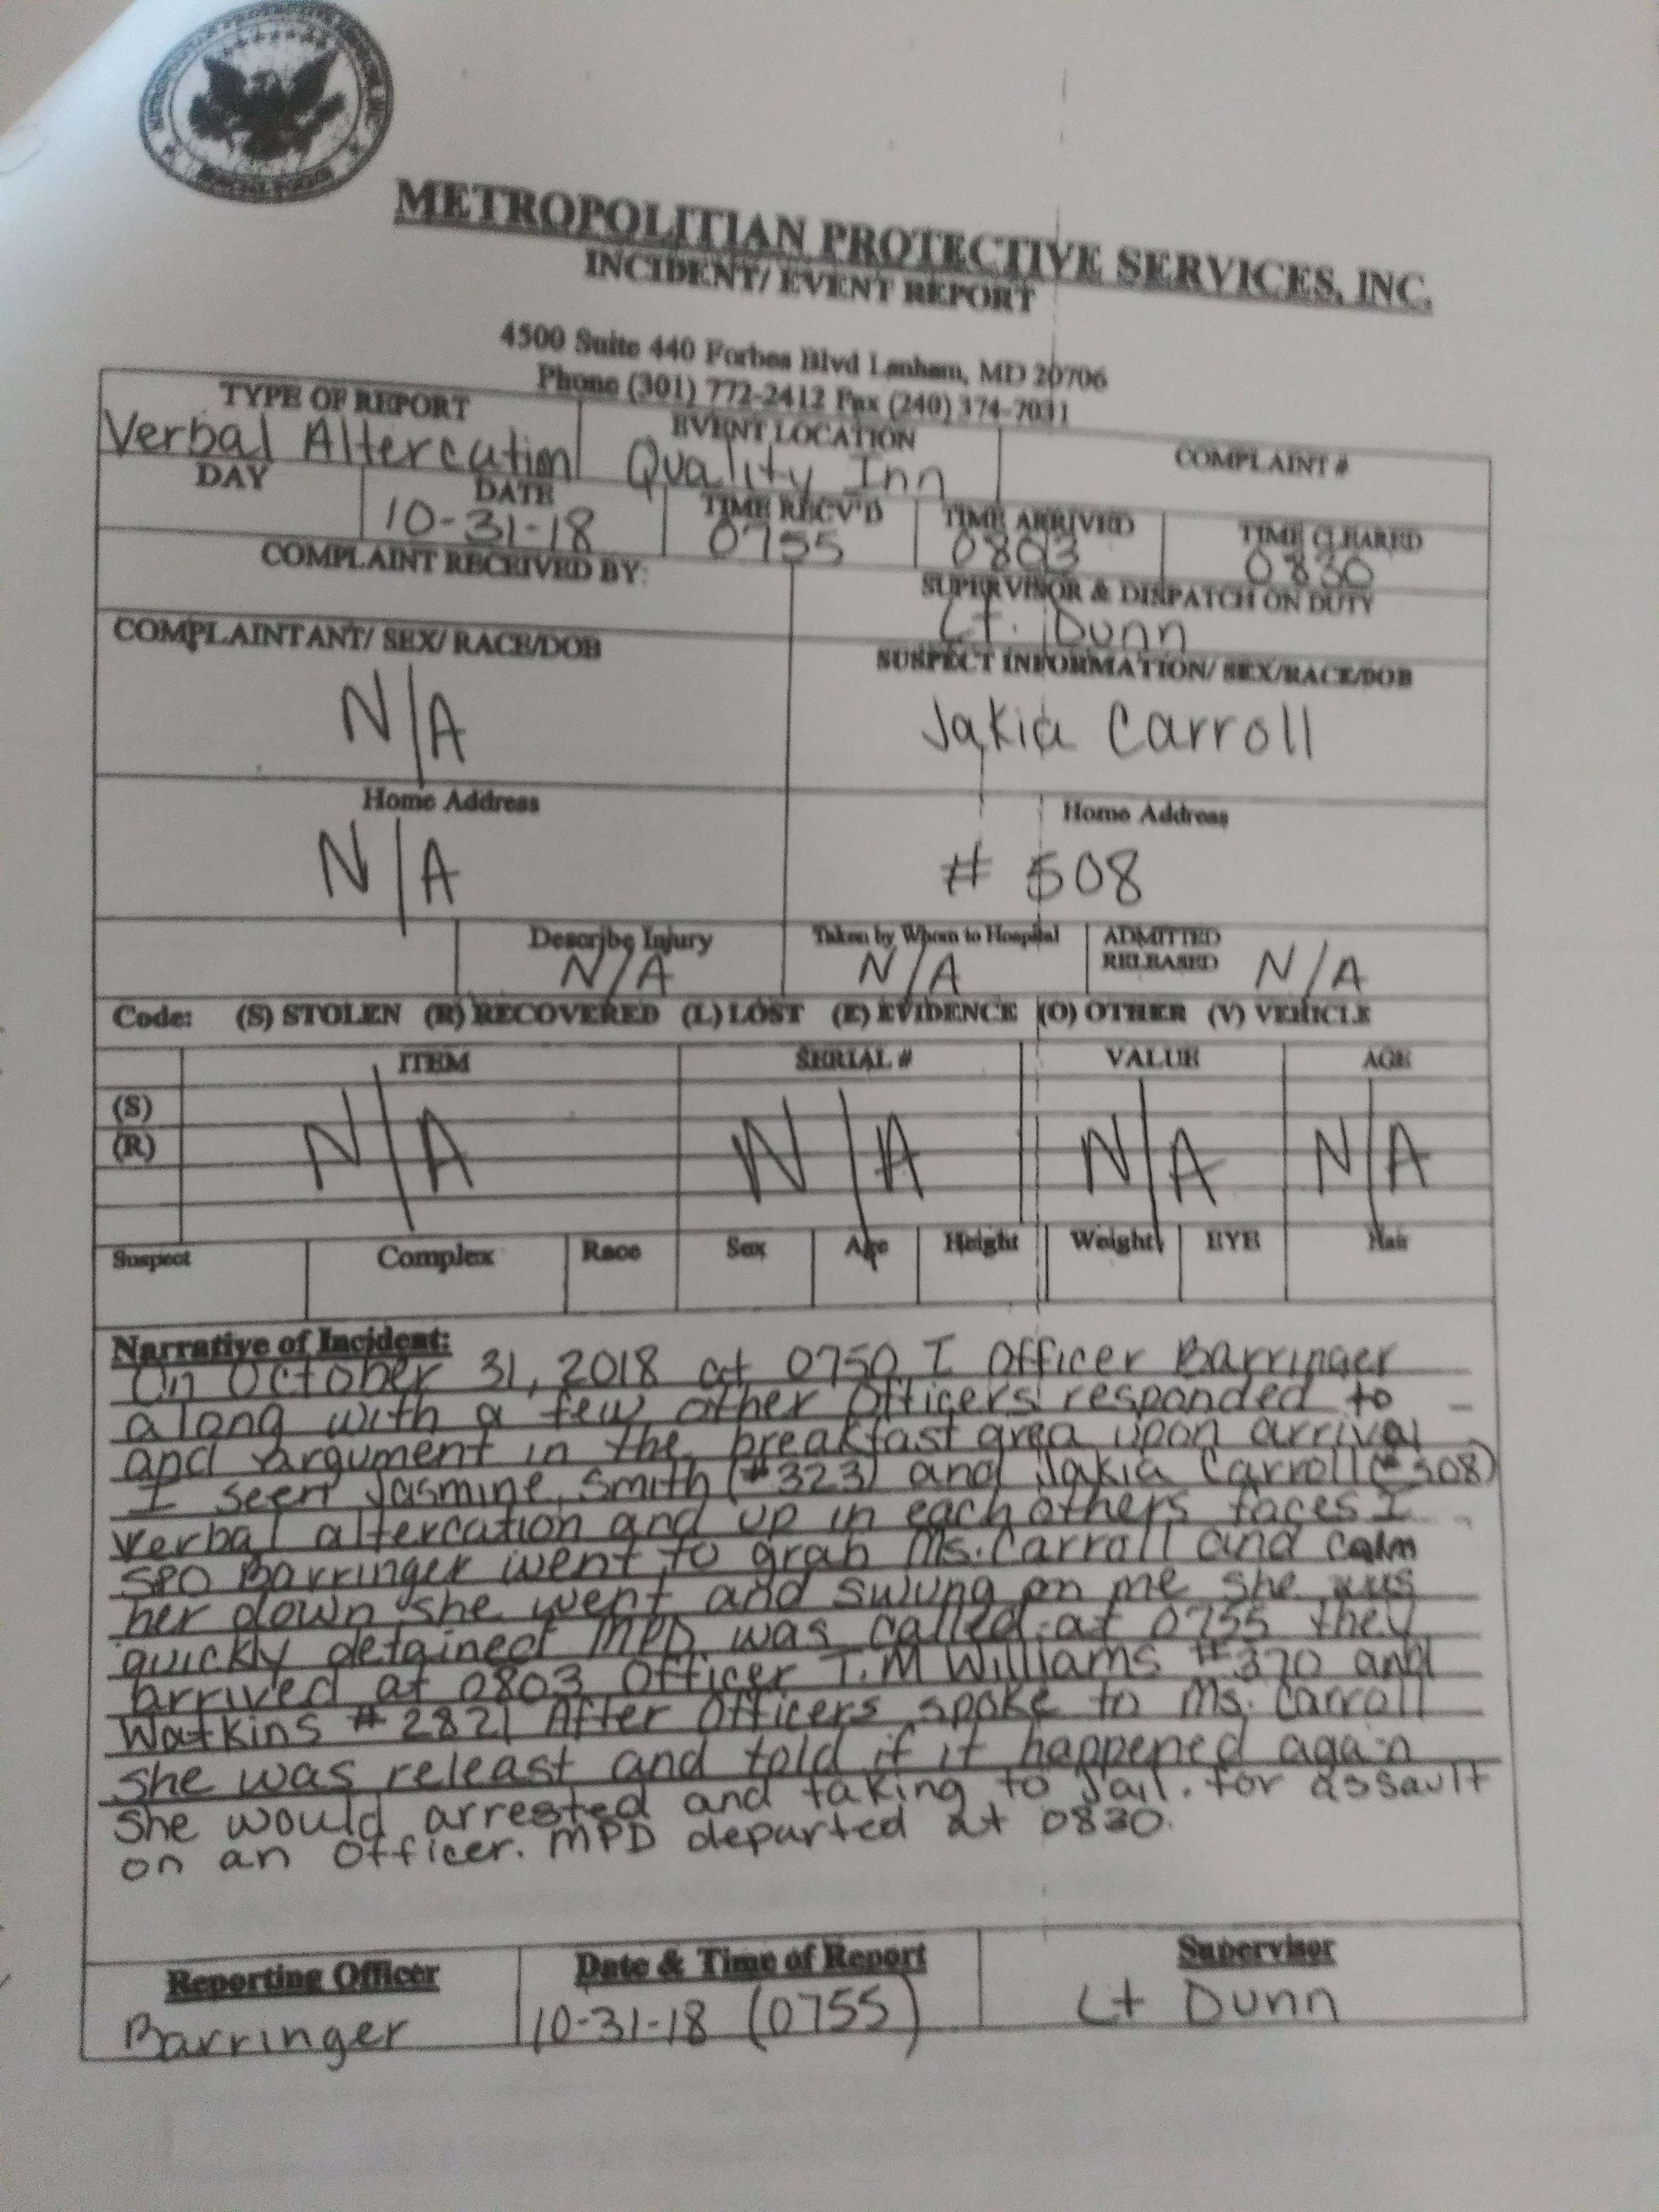 METROPOLITIAN PROTECTIVE SERVICES, INC.
INCIDENT/ EVENT REPORT
4500 Suite 440 Forbes Blvd Lanham, MD 20706
Phone (301) 772-2412 Fax (240) 374-7031
TYPE OF REPORT EVENT LOCATION COMPLAINT #
Verbal Altercation Quality Inn
DAY DATE TIME RECV'D TIME ARRIVED TIME CLEARED
10-31-18 0755 0803 0830
COMPLAINT RECEIVED BY: SUPERVISOR & DISPATCH ON DUTY
Lt. Dunn
COMPLAINTANT/ SEX/ RACE/DOB SUSPECT INFORMATION/ SEX/RACE/DOB
N/A Jakia Carroll
Home Address Home Address
N/A # 508
Describe Injury Taken by Whom to Hospital ADMITTED
RELEASED
N/A N/A N/A
Code: (S) STOLEN (R) RECOVERED (L) LOST (E) EVIDENCE (O) OTHER (V) VEHICLE
ITEM SERIAL # VALUE AGE
(S)
(R) N/A N/A N/A N/A
Suspect Complex Race Sex Age Height Weight EYE Hair
Narrative of Incident:
On October 31, 2018 at 0750 I Officer Barringer
along with a few other Officers responded to
and argument in the breakfast area upon arrival
I seen Jasmine Smith (#323) and Jakia Carroll (#508)
verbal altercation and up in each others faces I
SPO Barringer went to grab Ms. Carroll and calm
her down she went and swung on me she was
quickly detained MPD was called at 0755 they
arrived at 0803 Officer T.M Williams #370 and
Watkins #2821 After Officers spoke to Ms. Carroll
she was releast and told if it happened again
she would arrested and taking to Jail. for assault
on an Officer. MPD departed at 0830.
Reporting Officer Date & Time of Report Supervisor
Barringer 10-31-18 (0755) Lt Dunn